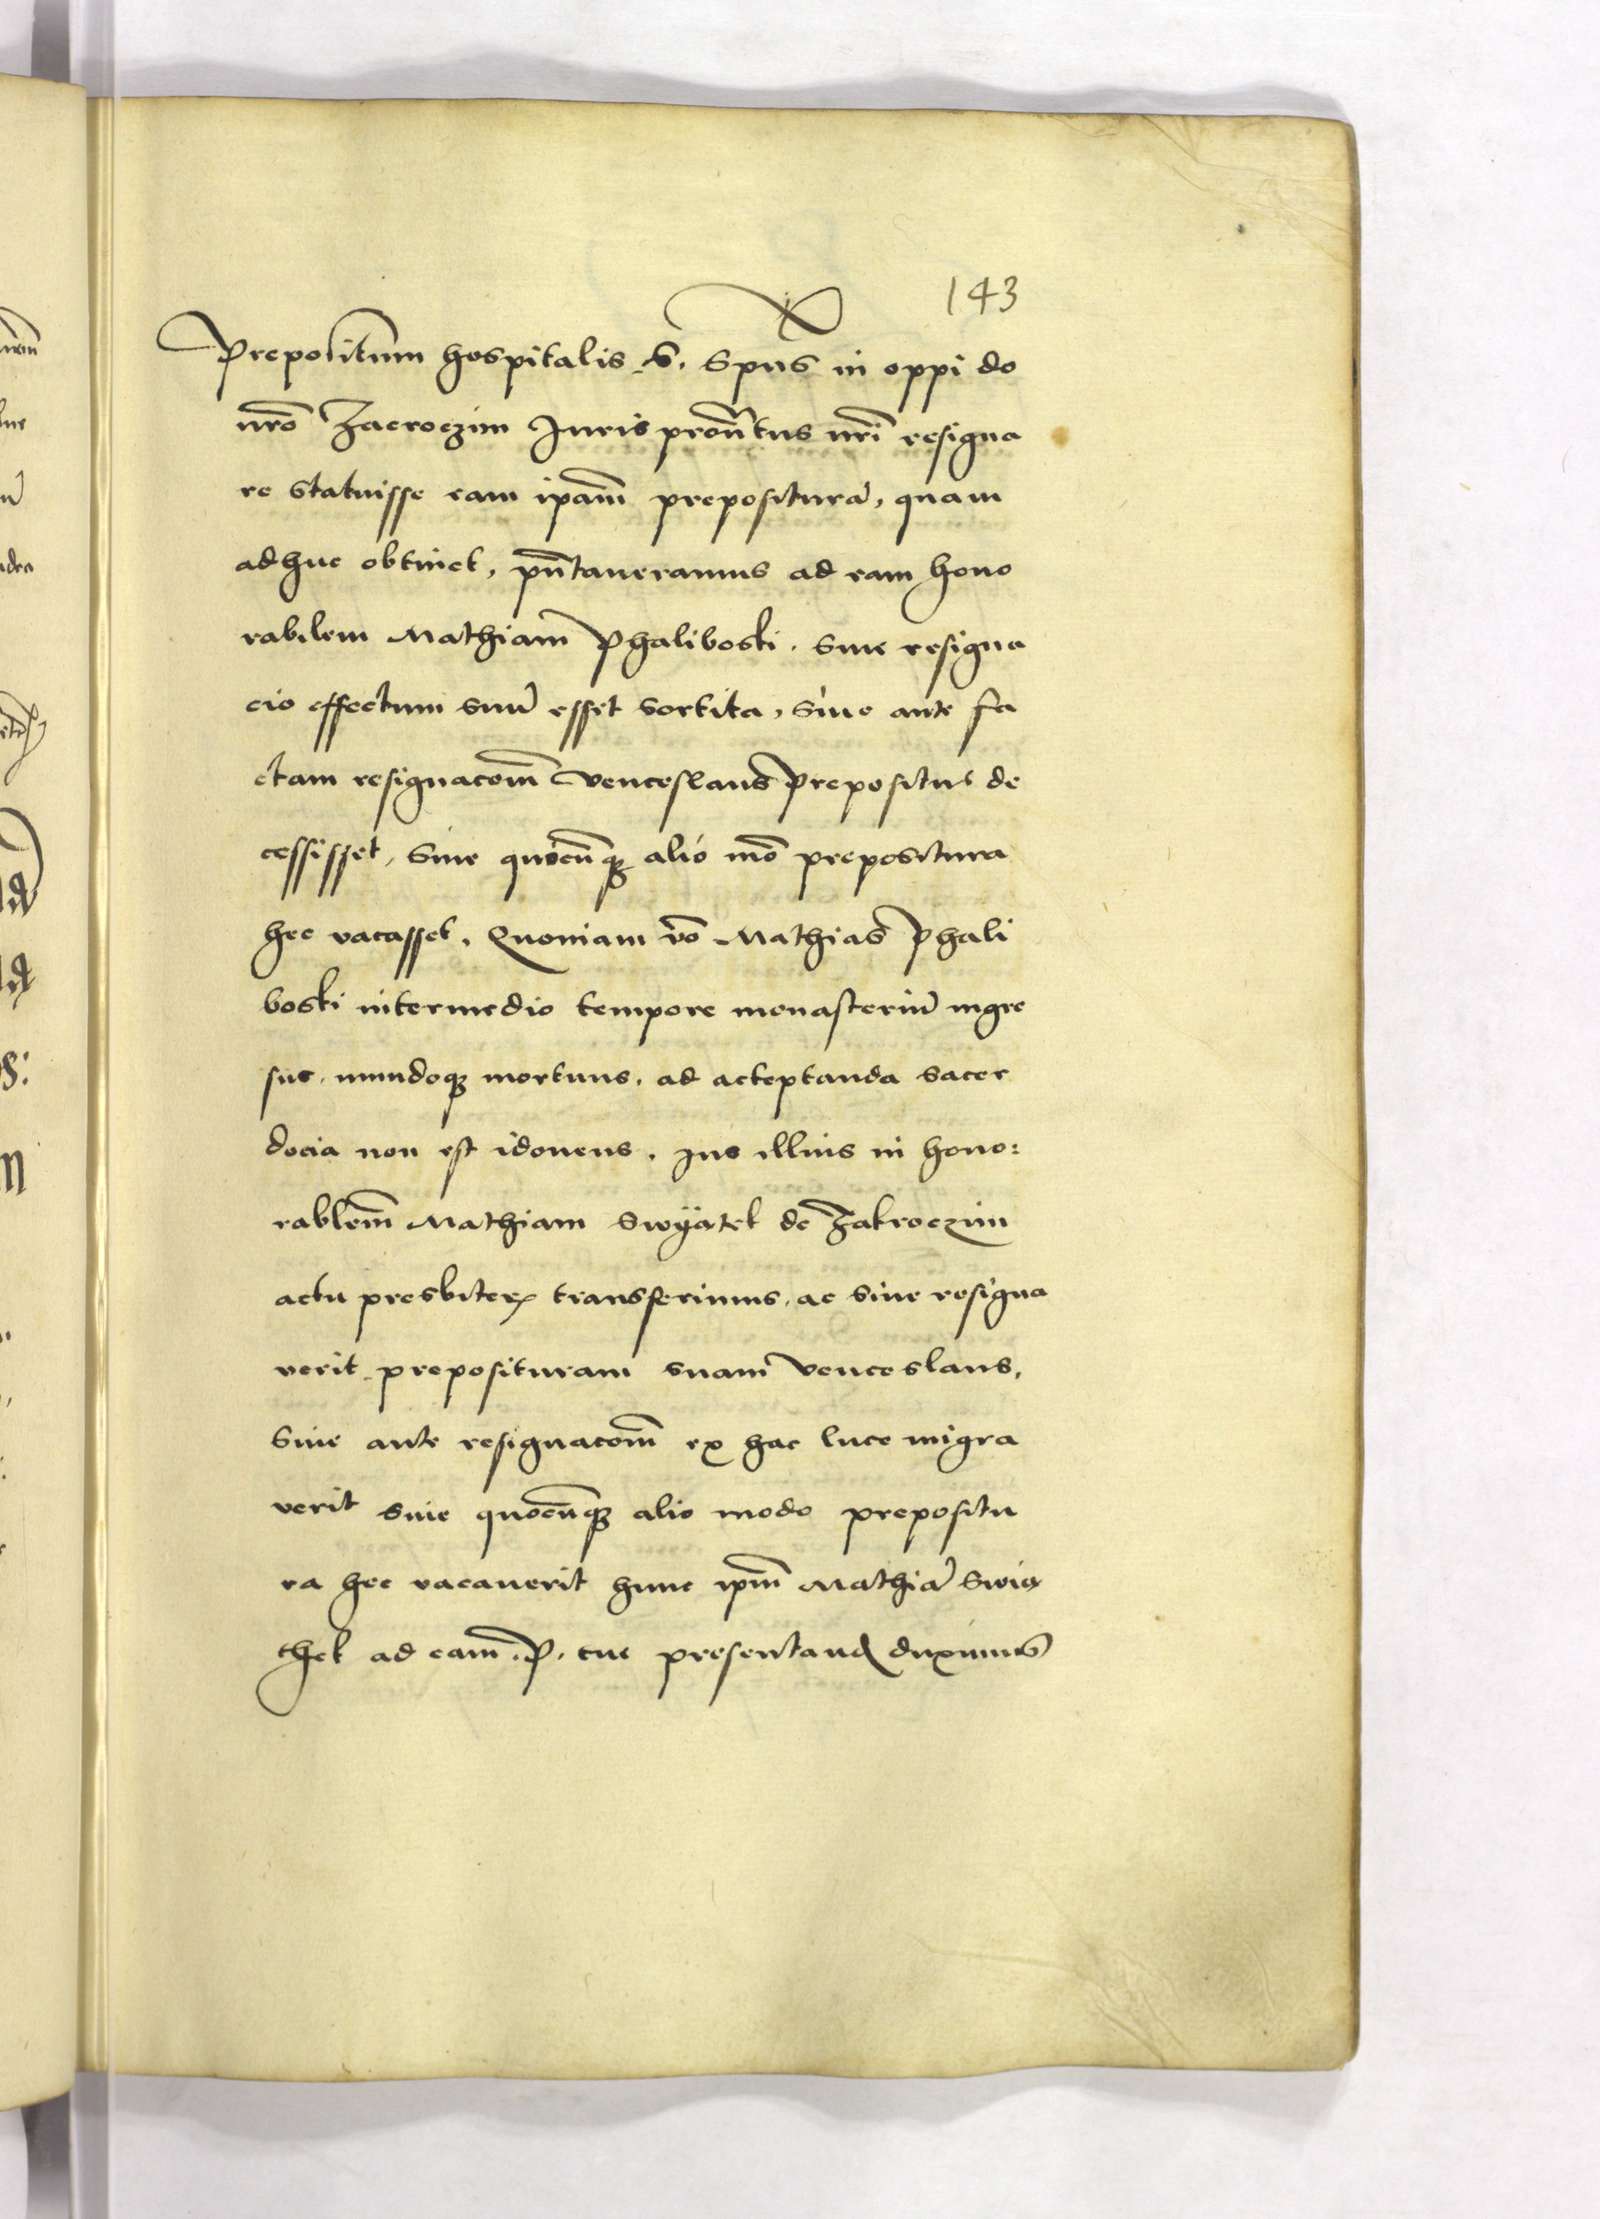 143
Prepositum hospitalis .S. Spūs in oppi do
nr̄o Zacroczim Juris pron̄tus nr̄i resigna
re statuisse eam ipam̄ preposituraˉ, quam
adhuc obtinet, pn̄taueramus ad eam hono
rabilem Mathiam Phaliboski. Siue resigna
cio effectum suuˉ esset sortita, siue ante fa
ctam resignacom̄ Venceslaus prepositus de
cessisset, Siue quocūq3 alio mō prepositura
hec vacasset. Quoniam vō Mathias Phali
boski intermedio tempore monasteriuˉ ingre
sus. mundoq3 mortuus. ad acceptanda sacer
docia non est idoneus. Jus illius in hono:
rablem̄ Mathiam Swÿatek de Zakroczim
actu presbiterˉ transferimus. ac siue resigna
verit preposituram suam Venceslaus,
Siue ante resignacom̄ ex hac luce migra
verit siue quocūq3 alio modo prepositu
ra hec vacauerit hunc ipm̄ Mathiaˉ Swia
thek ad eam .P. tue presentand duximus